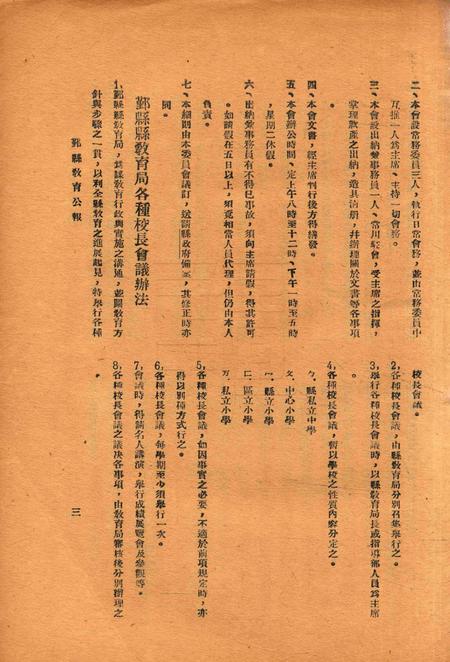 二、本會設常務委員三人，執行日常會務，並由常務委員中
互推一人爲主席，主持一切會務。
三、本會設出納兼事務員一人，常川駐會，受主席之指揮，
掌理欵產之出納，造具清册，幷辦理關於文書等各事項
。
四、本會文書，經主席判行後方得繕發。
五、本會辦公時間，定上午八時至十二時，下午一時至五時
，星期二休假。
六、出納兼事務員有不得已事故，須向主席請假，得其許可
。如請假在五日以上，須覓相當人員代理，但仍由本人
負責。
七、本細則由本委員會議訂，送請縣政府備案，其修正時亦
同。
鄞縣縣敎育局各種校長會議辦法
1,鄞縣縣敎育局，爲謀敎育行政與實施之溝通，並關敎育方
針與步驟之一貫，以利全縣敎育之進展起見，特舉行各種
校長會議。
2,各種校長會議，由縣敎育局分別召集舉行之。
3,舉行各種校長會議時，以縣敎育局長或指導部人員爲主席
。
4,各種校長會議，暫以學校之性質內容分定之。
ㄅ、縣私立中學
ㄆ、中心小學
ㄇ、縣立小學
ㄈ、區立小學
ㄪ、私立小學
5,各種校長會議，如因事實之必要，不適於前項規定時，亦
得以別種方式行之。
6,各種校長會議，每學期至少須舉行一次。
7,會議時，得請名人講演，舉行成績展覽會及參觀等。
8,各種校長會議之議决各事項，由敎育局審核後分別辦理之
。
鄞縣敎育公報
三